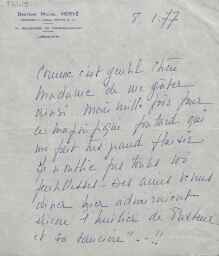 Docteur Michel HERVÉ
8.1.77
Comme c'est gentil chère
Madame de me gâter
ainsi. Merci mille fois pour
ce magnifique foulard qui
me fait très grand plaisir
Je n'oublie pas toutes vos
gentillesses - Des amis venus
dîner hier admiraient
encore "l'huilier de Pasteur
et sa saucière" --!!